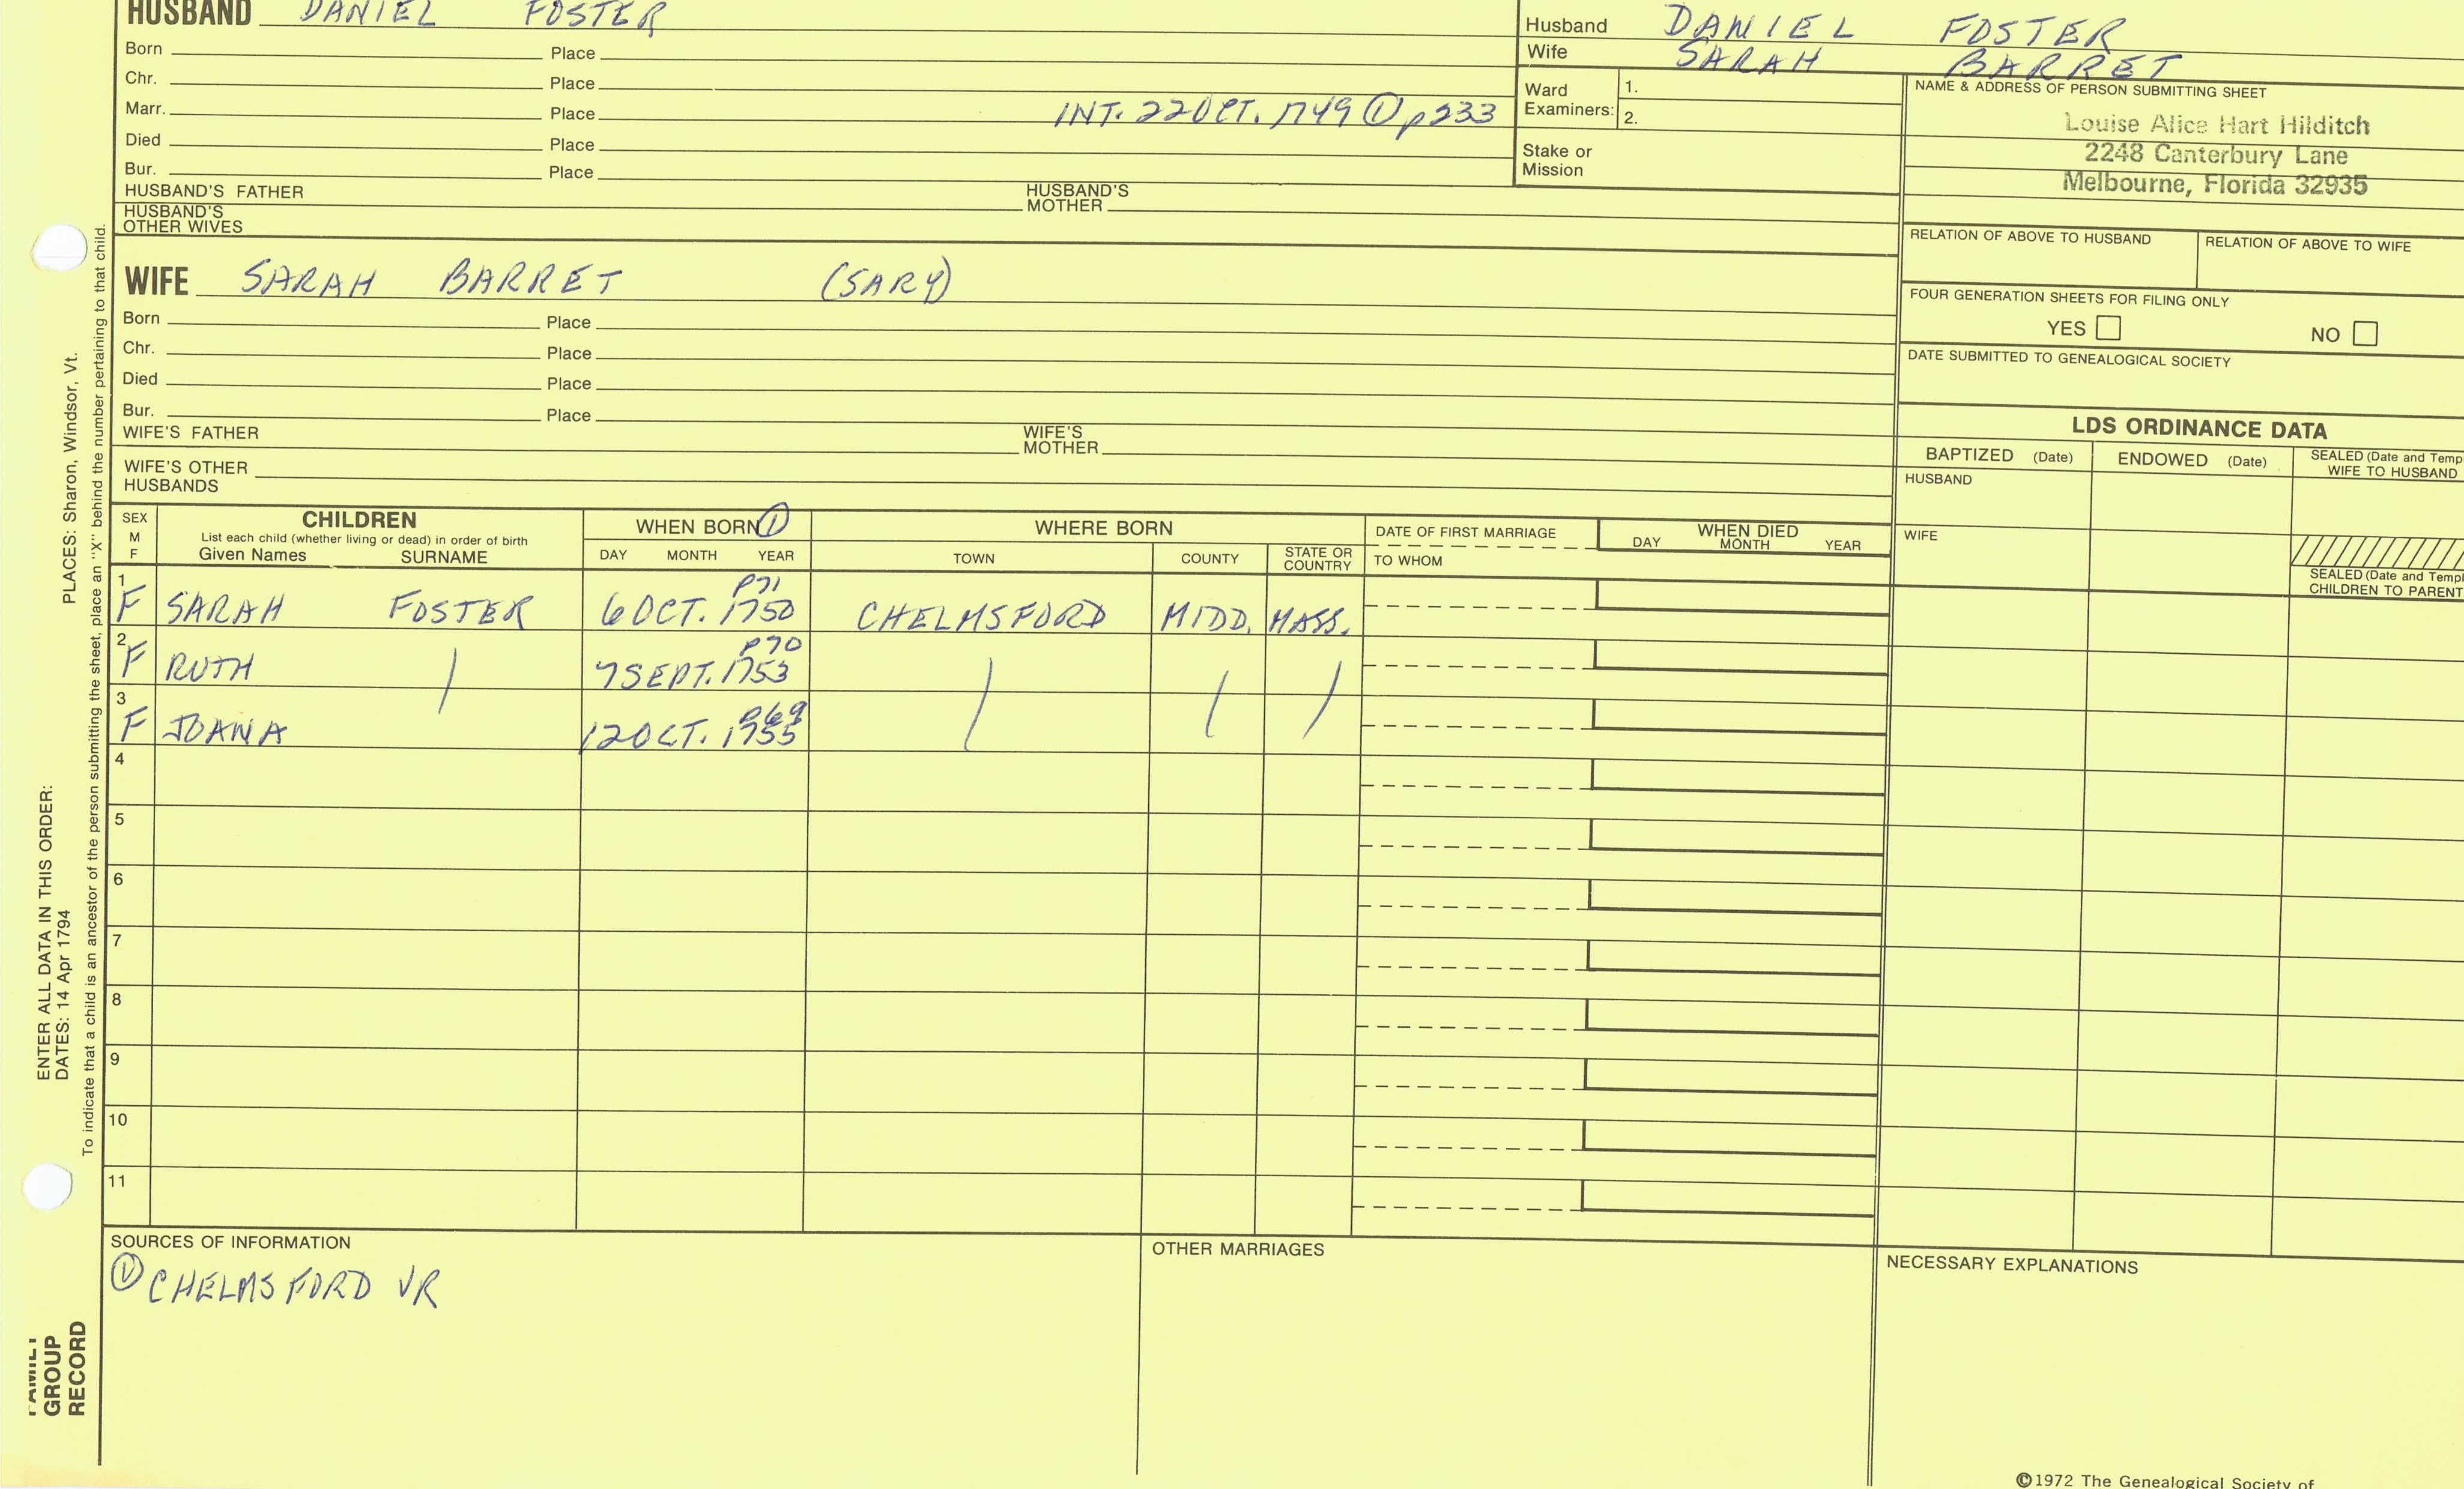 HUSBAND DANIEL FOSTER
Born Place
Chr. Place
Marr. Place INT. 22 OCT. 1749 ① p233
Died Place
Bur. Place
HUSBAND'S FATHER HUSBAND'S MOTHER
HUSBAND'S OTHER WIVES
Husband DANIEL FOSTER
Wife SARAH BARRET
Ward Examiners: 1.
2.
Stake or Mission
NAME & ADDRESS OF PERSON SUBMITTING SHEET
Louise Alice Hart Hilditch
2248 Canterbury Lane
Melbourne, Florida 32935
RELATION OF ABOVE TO HUSBAND RELATION OF ABOVE TO WIFE
FOUR GENERATION SHEETS FOR FILING ONLY
YES NO
DATE SUBMITTED TO GENEALOGICAL SOCIETY
WIFE SARAH BARRET (SARY)
Born Place
Chr. Place
Died Place
Bur. Place
WIFE'S FATHER WIFE'S MOTHER
WIFE'S OTHER HUSBANDS
LDS ORDINANCE DATA
BAPTIZED (Date) ENDOWED (Date) SEALED (Date and Temp
WIFE TO HUSBAND
HUSBAND
WIFE
SEALED (Date and Templ
CHILDREN TO PARENT
SEX
M
F
CHILDREN
List each child (whether living or dead) in order of birth
Given Names SURNAME
WHEN BORN ①
DAY MONTH YEAR
WHERE BORN
TOWN COUNTY STATE OR COUNTRY
DATE OF FIRST MARRIAGE
TO WHOM
WHEN DIED
DAY MONTH YEAR
P71
1 F SARAH FOSTER 6 OCT. 1750 CHELMSFORD MIDD. MASS.
P70
2 F RUTH 7 SEPT. 1753
P69
3 F JOANA 12 OCT. 1755
4
5
6
7
8
9
10
11
SOURCES OF INFORMATION
① CHELMSFORD VR
OTHER MARRIAGES
NECESSARY EXPLANATIONS
©1972 The Genealogical Society of
ENTER ALL DATA IN THIS ORDER:
DATES: 14 Apr 1794 PLACES: Sharon, Windsor, Vt.
To indicate that a child is an ancestor of the person submitting the sheet, place an "X" behind the number pertaining to that child.
FAMILY
GROUP
RECORD